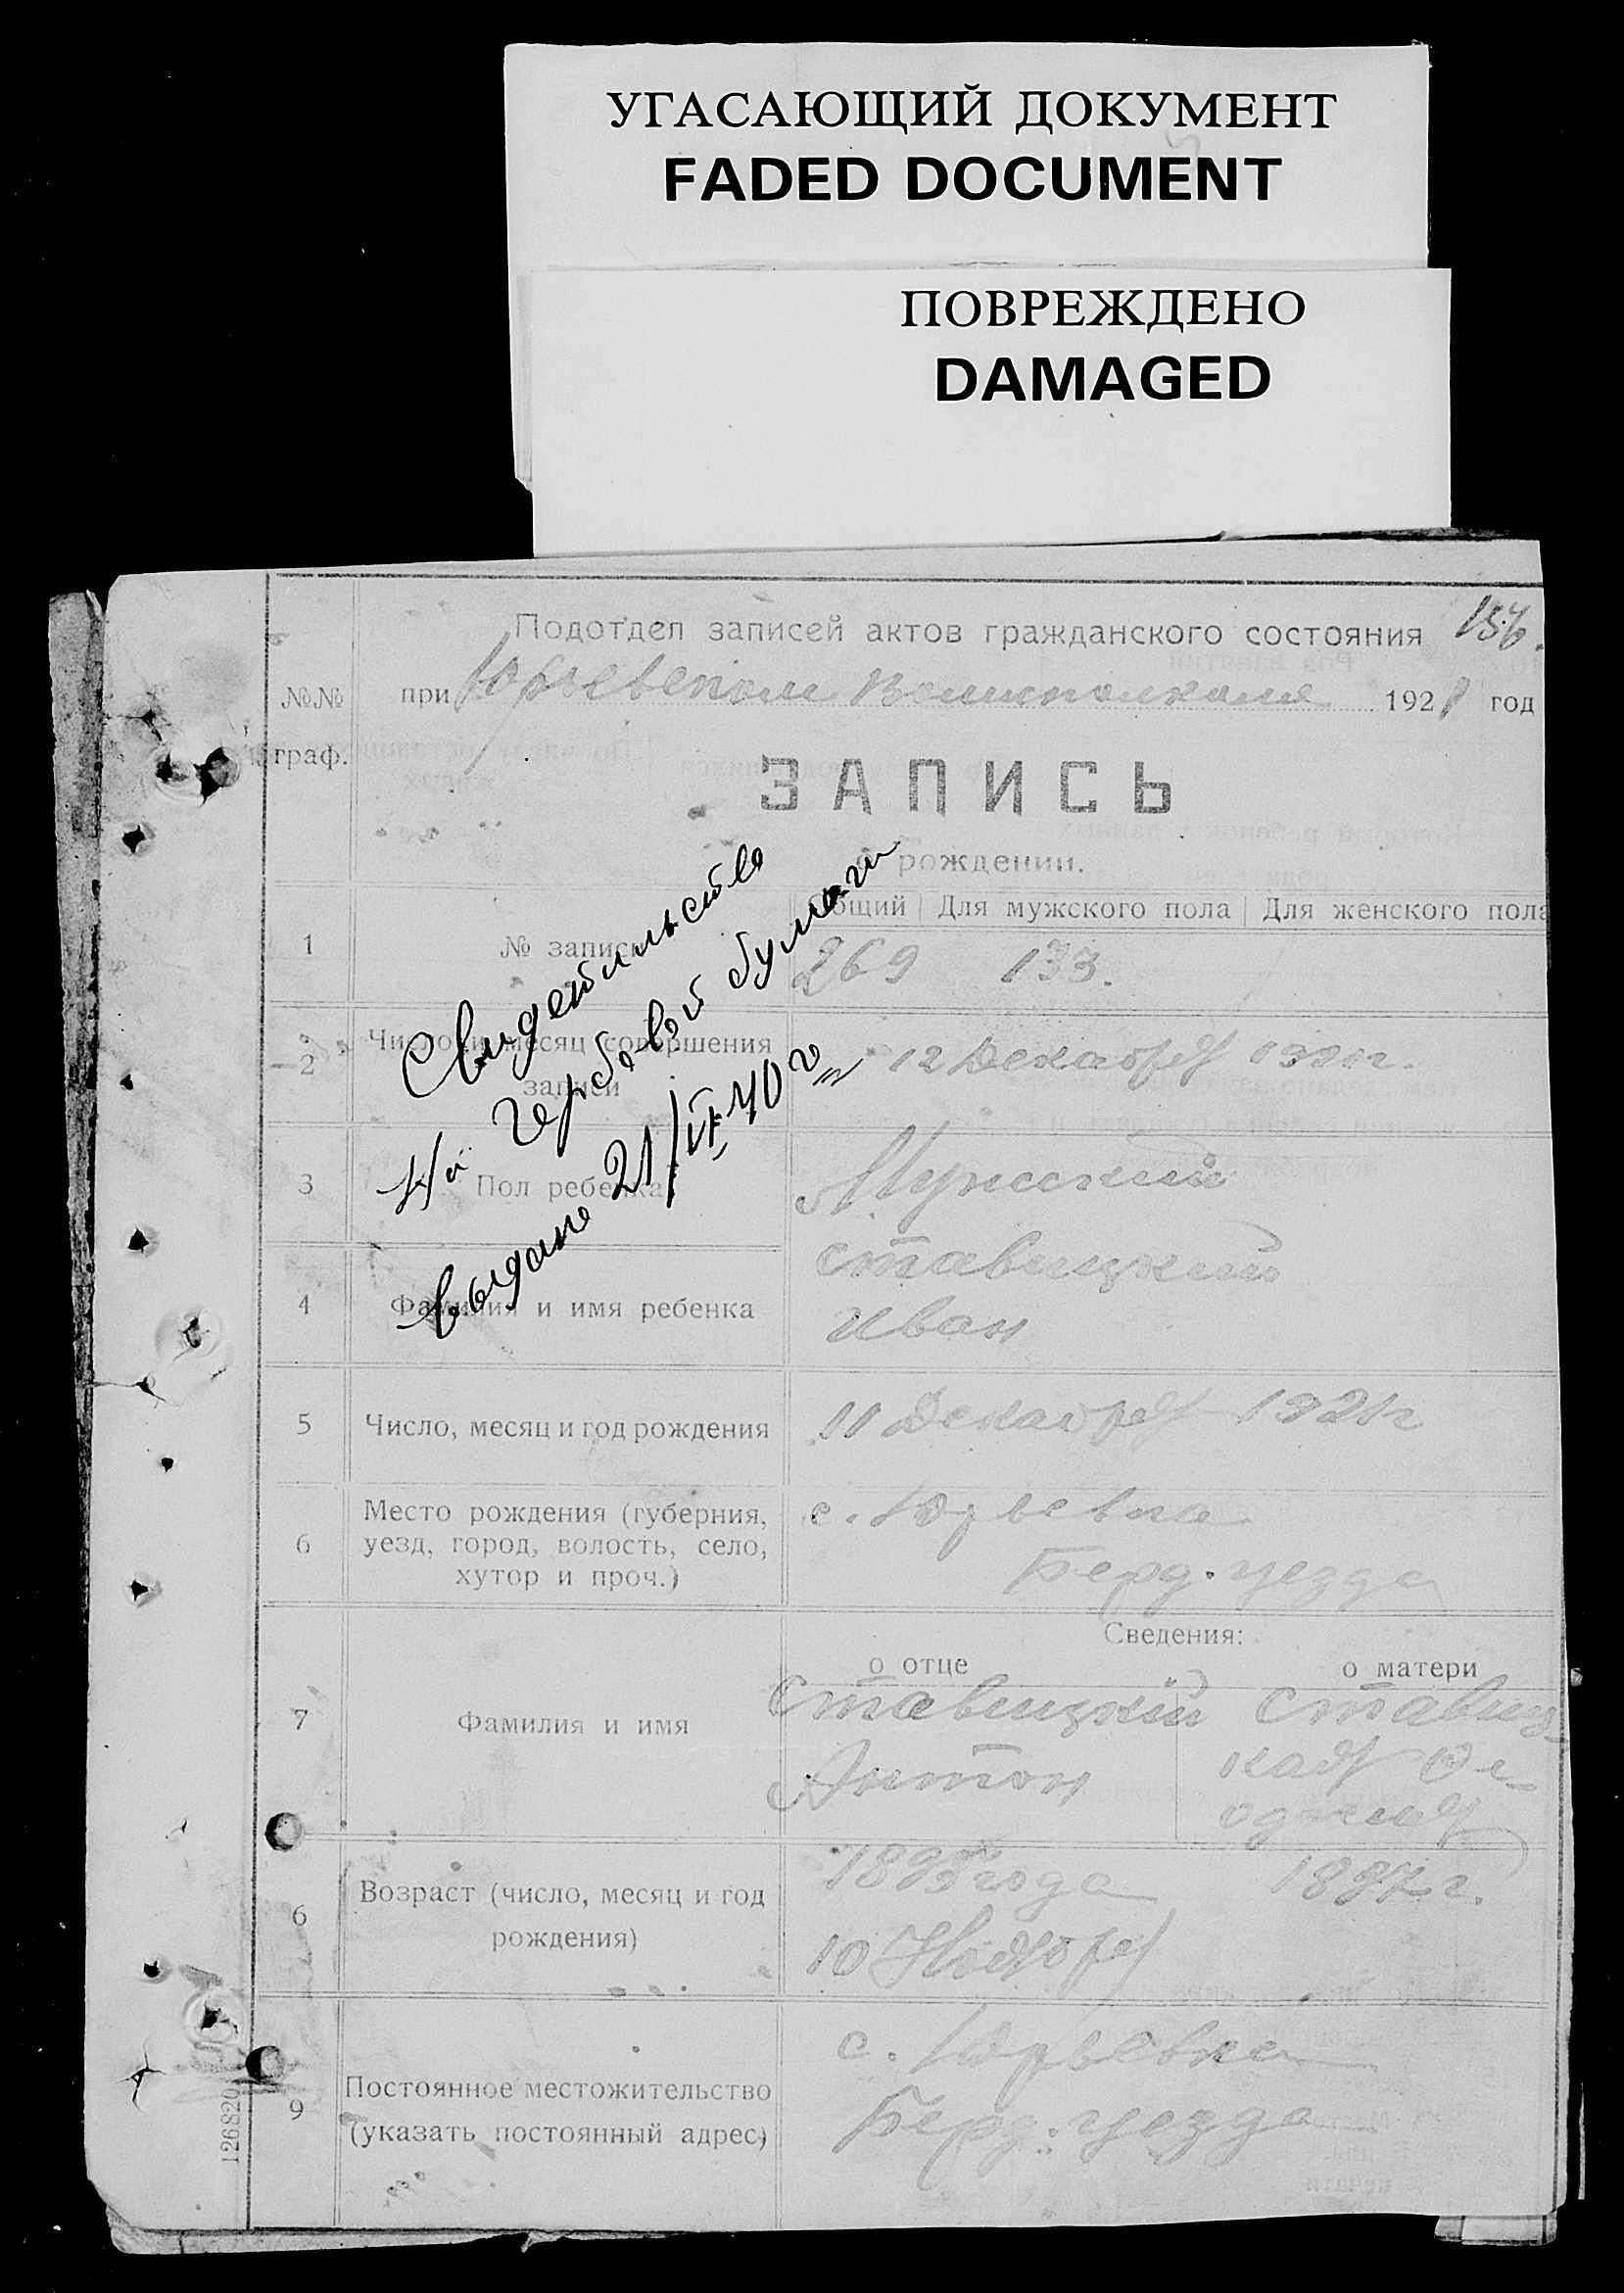 УГАСАЮЩИЙ ДОКУМЕНТ
FADED DOCUMENT
ПОВРЕЖДЕНО
DAMAGED
Подотдел записей актов гражданского состояния 156.
№№ граф.
при Юрьевском Волисполкоме 1921 год
ЗАПИСЬ
о рождении.
Общий | Для мужского пола | Для женского пола
1 № записи 269 133.
2 Число и месяц совершения записи 12 Декабря 1921 г.
Свидетельство
на гербовой бумаге
выдано 21/VI 40 г
3 Пол ребенка Мужской
4 Фамилия и имя ребенка Ставицкий
Иван
5 Число, месяц и год рождения 11 Декабря 1921 г
6 Место рождения (губерния,
уезд, город, волость, село,
хутор и проч.)
с. Юрьевка
Берд. уезда
Сведения:
о отце о матери
7 Фамилия и имя
Ставицкий
Антон
Ставиц-
кая
6 Возраст (число, месяц и год
рождения)
1895 года
10 Ноября
1897 г.
9 Постоянное местожительство
(указать постоянный адрес)
с. Юрьевка
Берд. уезда
126820